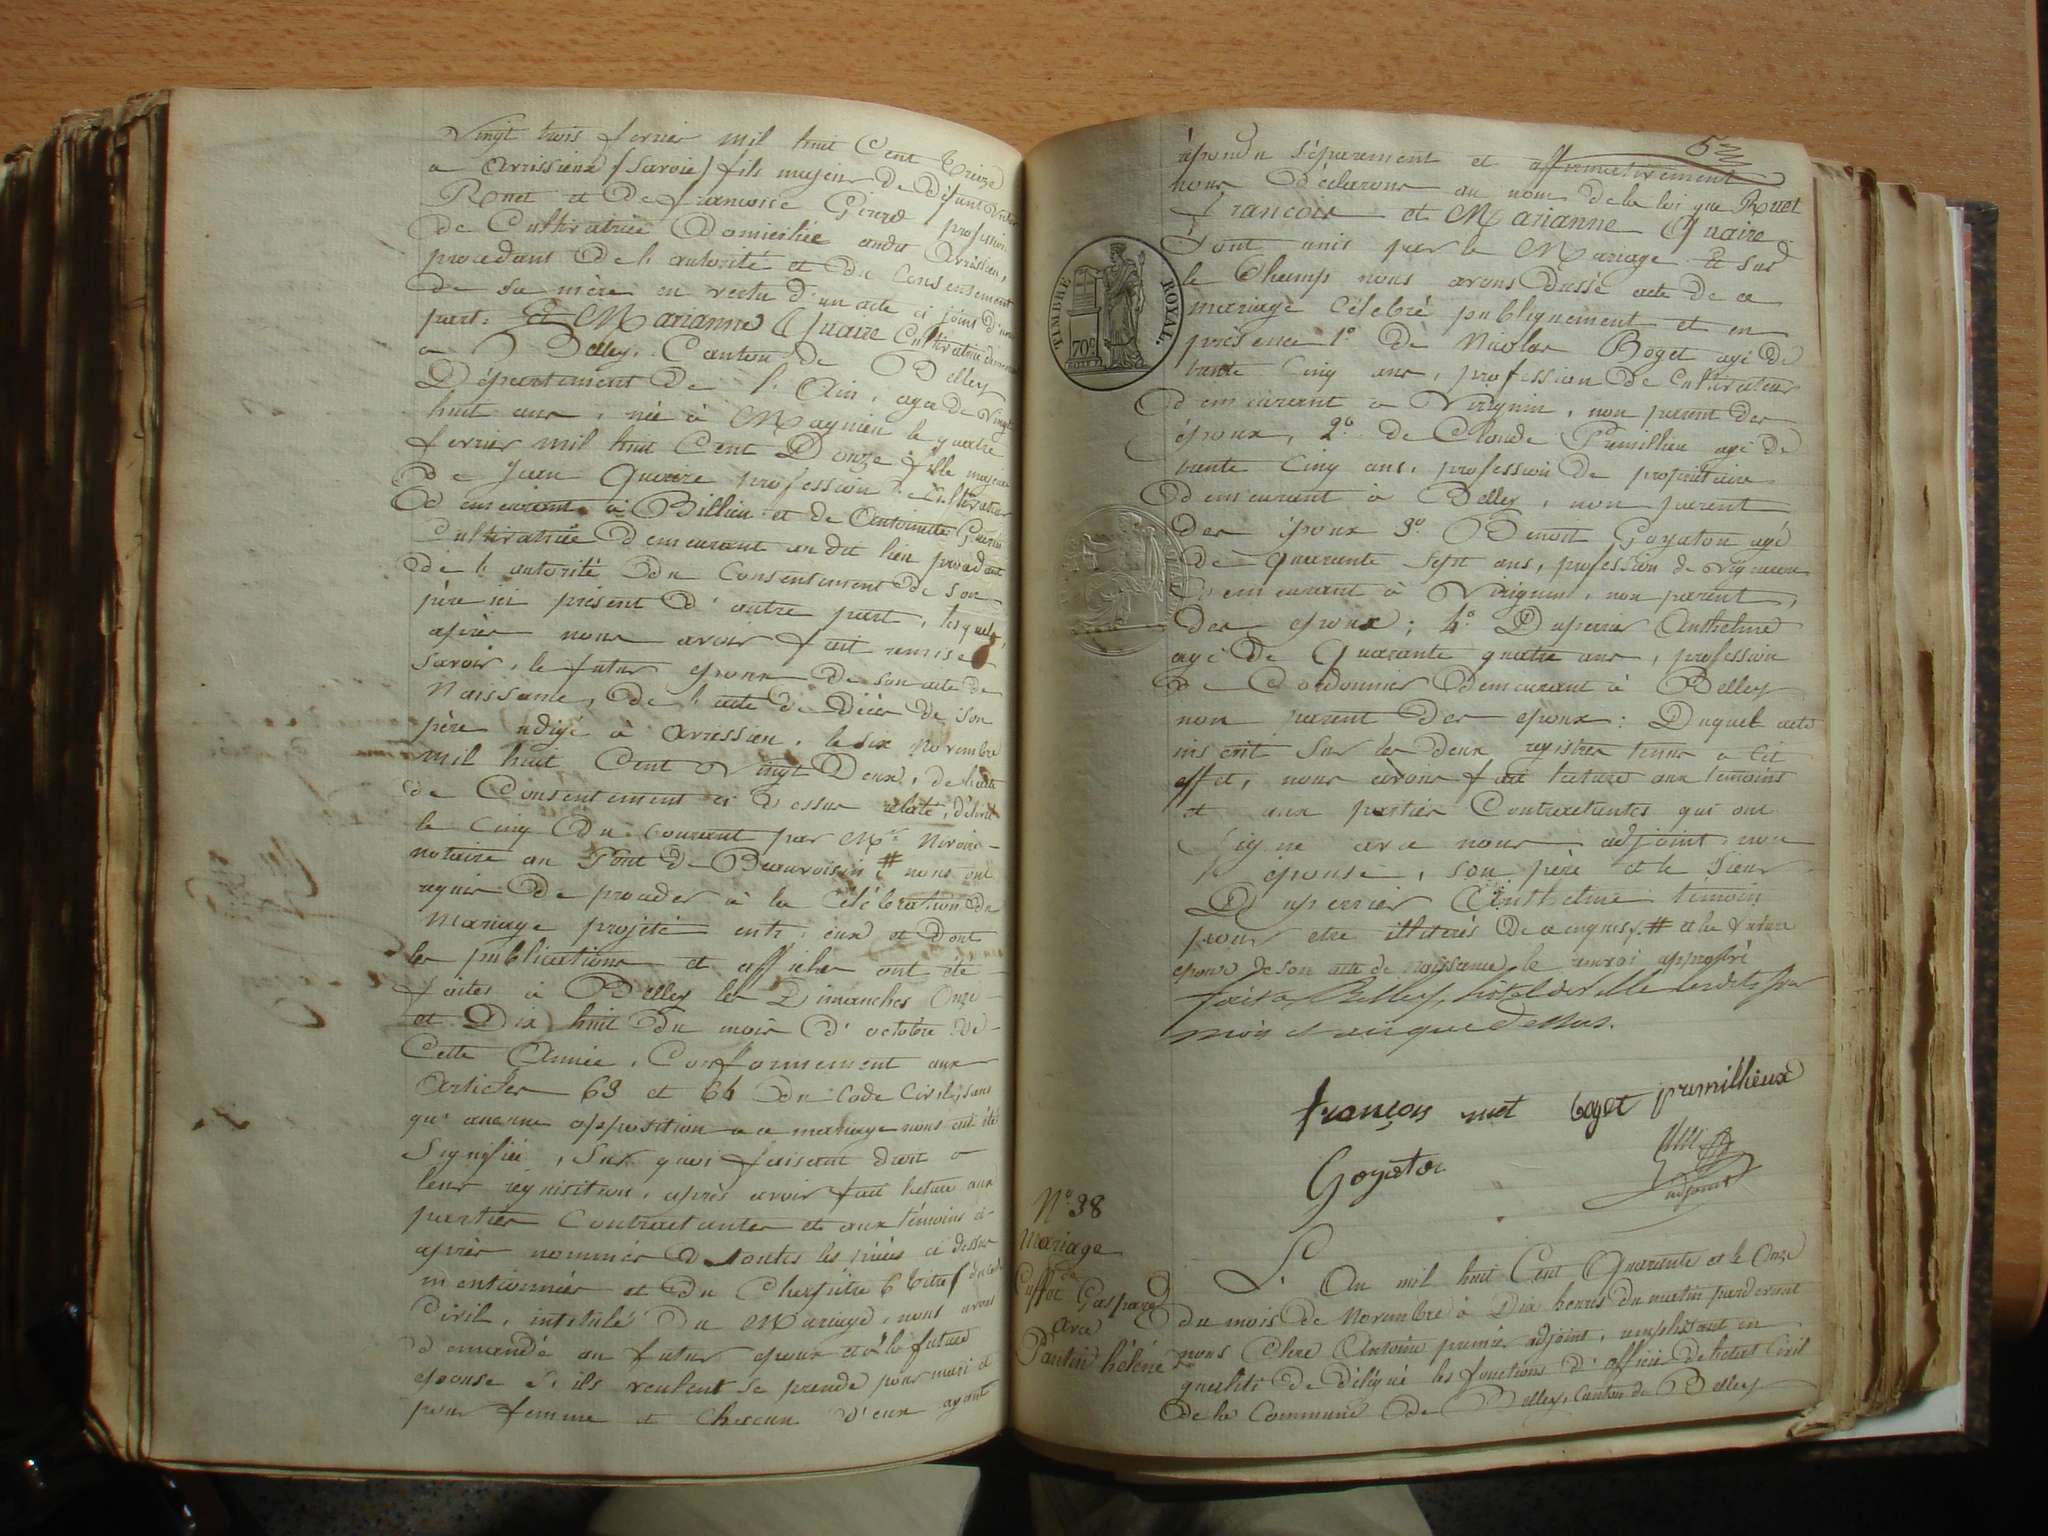 Vingt trois fevrier mil huit Cent Treize
a Arrissieux (Savoie) fils majeur de Défunt
Ruet et de francoise Girerd profession
de Cultivatrice Domiciliée audit Arrissieu,
procedant de l'autorité et du Consentement
de sa mère en vertu d'un acte ci joint d'une
part: Et Marianne Quaire Cultivatrice
a Belley, Canton de Belley
Département de l'Ain, agée de Vingt
huit ans, née à Magnieu le quatre
fevrier mil huit Cent Douze fille majeure
de Jean Quaire profession de Cultivateur
Demeurant à Billieu et de Antoinette
Cultivatrice demeurant au dit lieu procedant
de l'autorité du Consentement de son
père ici présent d'autre part, lesquels
après nous avoir fait remise
Savoir, le futur epoux de son acte de
Naissance, de l'acte de Décès de son
père rédigé à Arrissieu, le six Novembre
mil huit Cent Vingt Deux, de l'acte
de Consentement ci dessus relaté, délivré
le Cinq du courant par Mre
notaire au Pont de Beauvoisin # nous ont
requis de proceder à la Célébration du
Mariage projeté entr'eux et dont
les publications et affiches ont été
faites à Belley les Dimanches Onze
et Dix huit du mois d'octobre de
Cette Année, Conformement aux
Articles 63 et 64 du Code Civil, sans
qu'aucune opposition a ce mariage nous ait été
Signifiée, Sur quoi faisant droit a
leur réquisition, après avoir fait lecture aux
parties Contractantes et aux témoins ci-
après nommés de toutes les pièces ci dessus
mentionnées et du Chapitre 6 titre 5 du Code
Civil, intitulé du Mariage, nous avons
demandé au futur epoux et à la future
epouse s'ils veulent se prendre pour mari et
pour femme et chacun d'eux ayant
5
répondu séparement et affirmativement
nous déclarons au nom de la loi que Ruet
François et Marianne Quaire
Sont unis par le Mariage. Et Sur
le Champ nous avons dressé acte de ce
mariage Célébré publiquement et en
présence 1º de Nicolas Boget agé de
trente Cinq ans, profession de Cultivateur
demeurant a Virignin, non parent des
époux, 2º de Claude Primillieu agé de
trente Cinq ans, profession de propriétaire
demeurant à Belley, non parent
des époux 3º Benoit Goyaton agé
de quarante sept ans, profession de vigneron
demeurant à Virignin, non parent,
des epoux; 4º Duperrier Anthelme
agé de Quarante quatre ans, profession
de Cordonnier demeurant à Belley
non parent des epoux: Duquel acte
inscrit Sur les deux registres tenus a cet
effet, nous avons fait lecture aux témoins
et aux parties Contractantes qui ont
Signé avec nous adjoint, non
l'épouse, son père et le Sieur
Duperrier Anthelme témoin
pour etre illitérés de ce enquis, # et la future
epouse de son acte de naissance le renvoi approuvé
fait a Belley, hotel de ville les dits jour
mois et an que dessus.
françois ruet boget primillieux
Goyaton
adjoint
TIMBRE ROYAL.
70c
Nº 38
Mariage
de
Cuffet Gaspard
avec
Pantin hélène
L'An mil huit Cent Quarante et le Onze
du mois de Novembre à Dix heures du matin pardevant
nous Antoine premier adjoint, remplissant en
qualité de délégué les fonctions d'officier de l'etat Civil
de la Commune de Belley, Canton de Belley